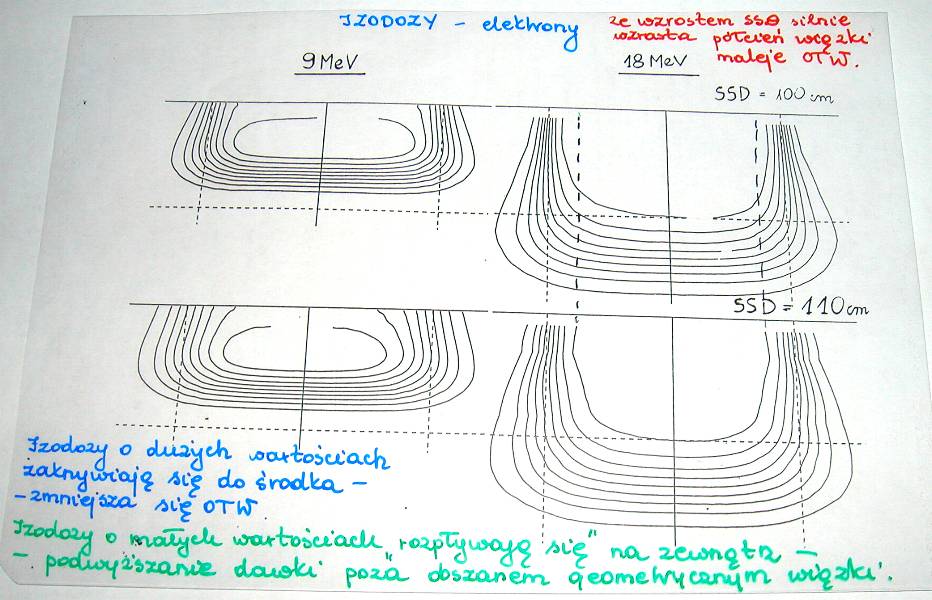 IZODOZY - elektrony
ze wzrostem SSD silnie
wzrasta półcień wiązki
maleje OTW.
9 MeV
18 MeV
SSD = 100 cm
SSD = 110 cm
Izodozy o dużych wartościach
zakrywiają się do środka -
- zmniejsza się OTW
Izodozy o małych wartościach „rozpływają się" na zewnątrz -
- podwyższanie dawki poza obszarem geometrycznym wiązki.